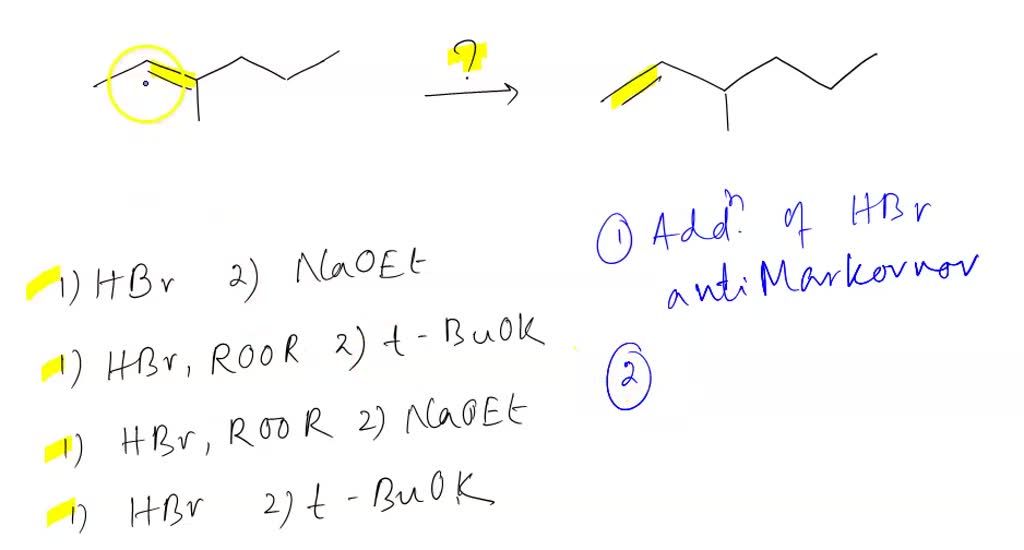 ?
1) HBr 2) NaOEt
1) HBr, ROOR 2) t-BuOK
1) HBr, ROOR 2) NaOEt
1) HBr 2) t-BuOK
① Addn. of HBr
anti Markovnov
②